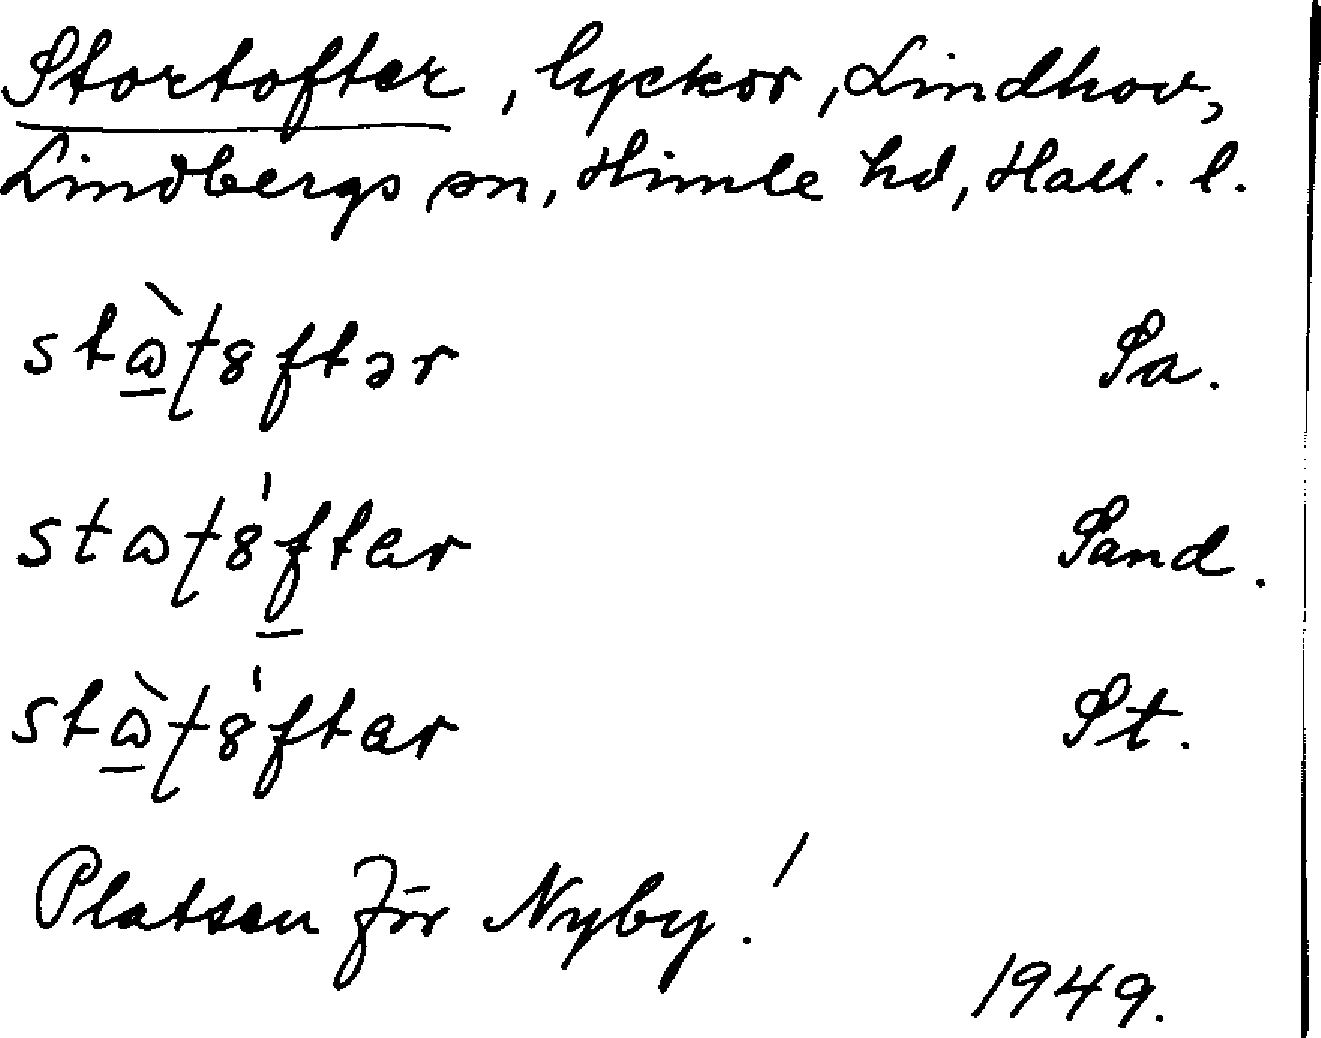 Stortofter, lyckor, Lindhov,
Lindbergs sn, Himle hd, Hall. l.
Sa.
Sand.
St.
Platsen för Nyby!
1949.